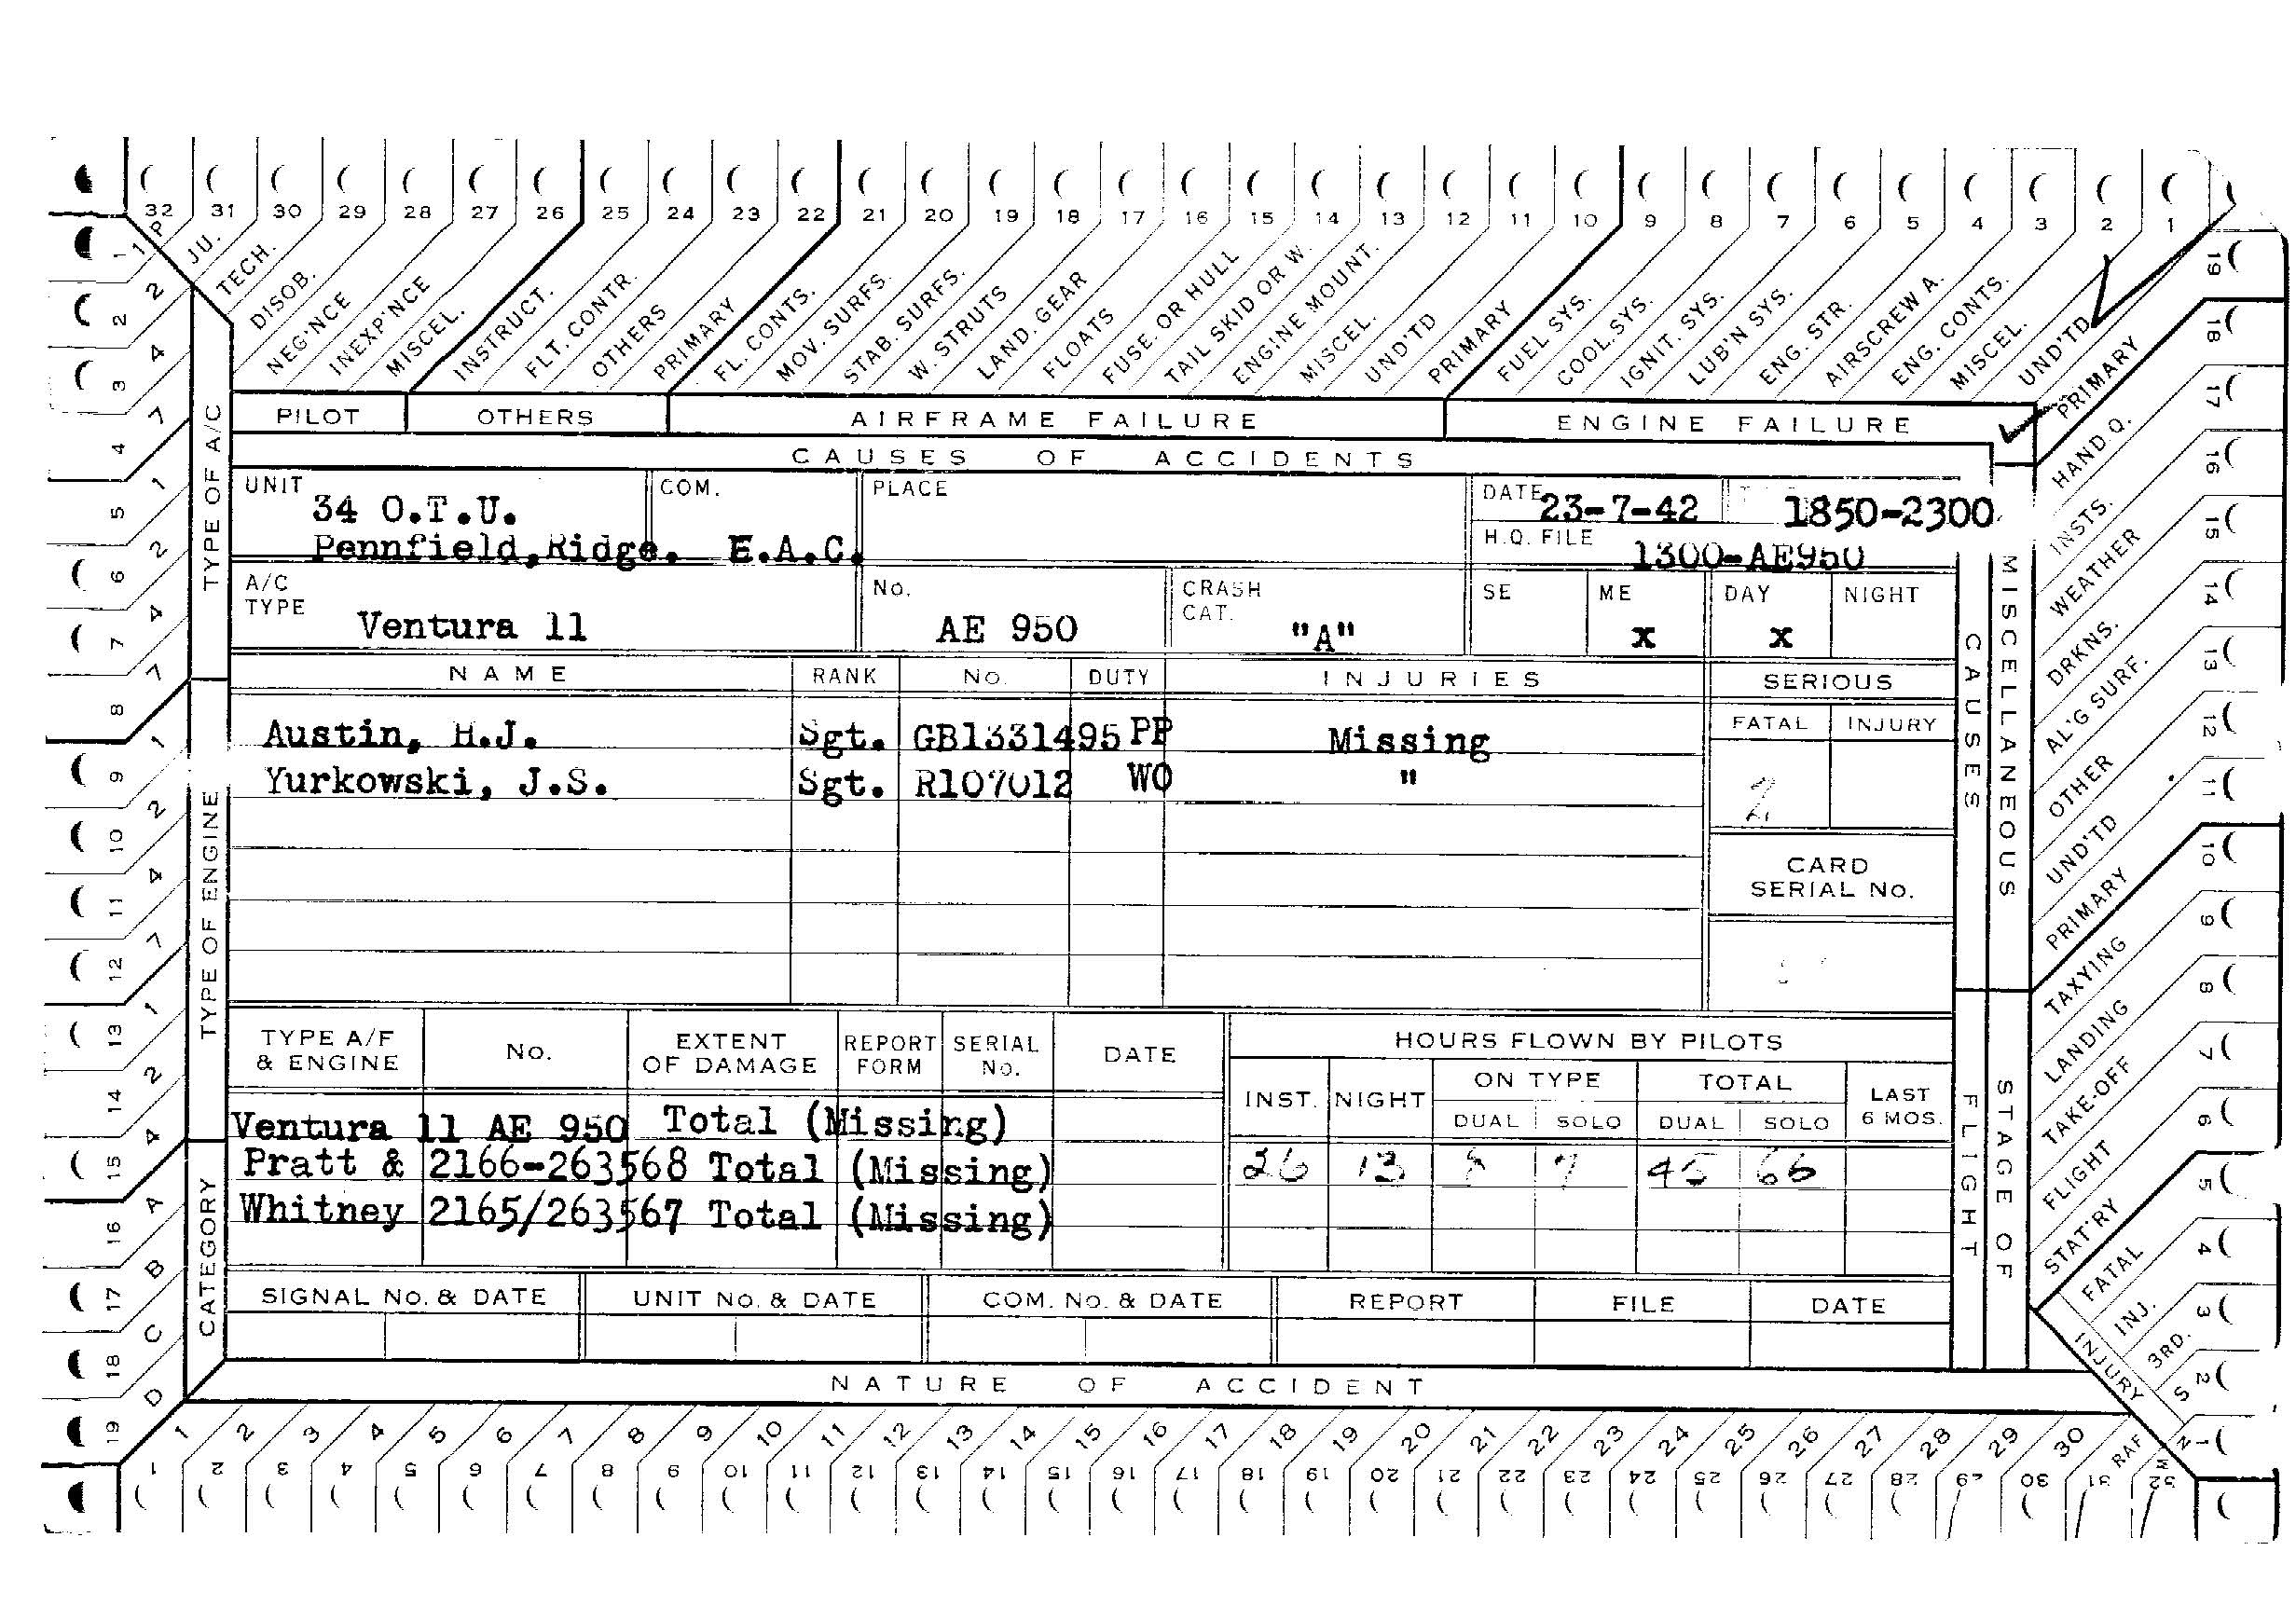 32 31 30 29 28 27 26 25 24 23 22 21 20 19 18 17 16 15 14 13 12 11 10 9 8 7 6 5 4 3 2 1
P JU. TECH. DISOB. NEG'NCE INEXP'NCE MISCEL. INSTRUCT. FLT. CONTR. OTHERS PRIMARY FL. CONTS. MOV. SURFS. STAB. SURFS. W. STRUTS LAND. GEAR FLOATS FUSE. OR HULL TAIL SKID OR W. ENGINE MOUNT. MISCEL. UND'TD PRIMARY FUEL SYS. COOL. SYS. IGNIT. SYS. LUB'N SYS. ENG. STR. AIRSCREW A. ENG. CONTS. MISCEL. UND'TD
PILOT OTHERS AIRFRAME FAILURE ENGINE FAILURE
CAUSES OF ACCIDENTS
UNIT COM. PLACE DATE
34 O.T.U. 23-7-42 1850-2300
Pennfield,Ridge. E.A.C. H.Q. FILE 1300-AE950
A/C TYPE No. CRASH CAT. SE ME DAY NIGHT
Ventura 11 AE 950 "A" x x
NAME RANK No. DUTY INJURIES SERIOUS
FATAL INJURY
Austin, H.J. Sgt. GB1331495 PP Missing
Yurkowski, J.S. Sgt. R107012 WO "
2
CARD
SERIAL No.
TYPE A/F & ENGINE No. EXTENT OF DAMAGE REPORT FORM SERIAL No. DATE HOURS FLOWN BY PILOTS
INST. NIGHT ON TYPE TOTAL LAST 6 MOS.
DUAL SOLO DUAL SOLO
Ventura 11 AE 950 Total (Missing)
Pratt & 2166-263568 Total (Missing) 26 13 8 7 45 66
Whitney 2165/263567 Total (Missing)
SIGNAL No. & DATE UNIT No. & DATE COM. No. & DATE REPORT FILE DATE
NATURE OF ACCIDENT
1 2 3 4 5 6 7 8 9 10 11 12 13 14 15 16 17 18 19 20 21 22 23 24 25 26 27 28 29 30 RAF
1 2 3 4 5 6 7 8 9 10 11 12 13 14 15 16 17 18 19 20 21 22 23 24 25 26 27 28 29 30 31 32
TYPE OF A/C
TYPE OF ENGINE
CATEGORY
1 2 3 4 5 6 7 8 9 10 11 12 13 14 15 16 17 18 19
1 2 4 7 1 2 4 7 1 2 4 7 1 2 4 A B C D
MISCELLANEOUS
CAUSES
STAGE OF
FLIGHT
PRIMARY
HAND Q.
INSTS.
WEATHER
DRKNS.
AL'G SURF.
OTHER
UND'TD
PRIMARY
TAXYING
LANDING
TAKE-OFF
FLIGHT
STAT'RY
FATAL
INJ.
3RD.
INJURY
S
N
19 18 17 16 15 14 13 12 11 10 9 8 7 6 5 4 3 2 1